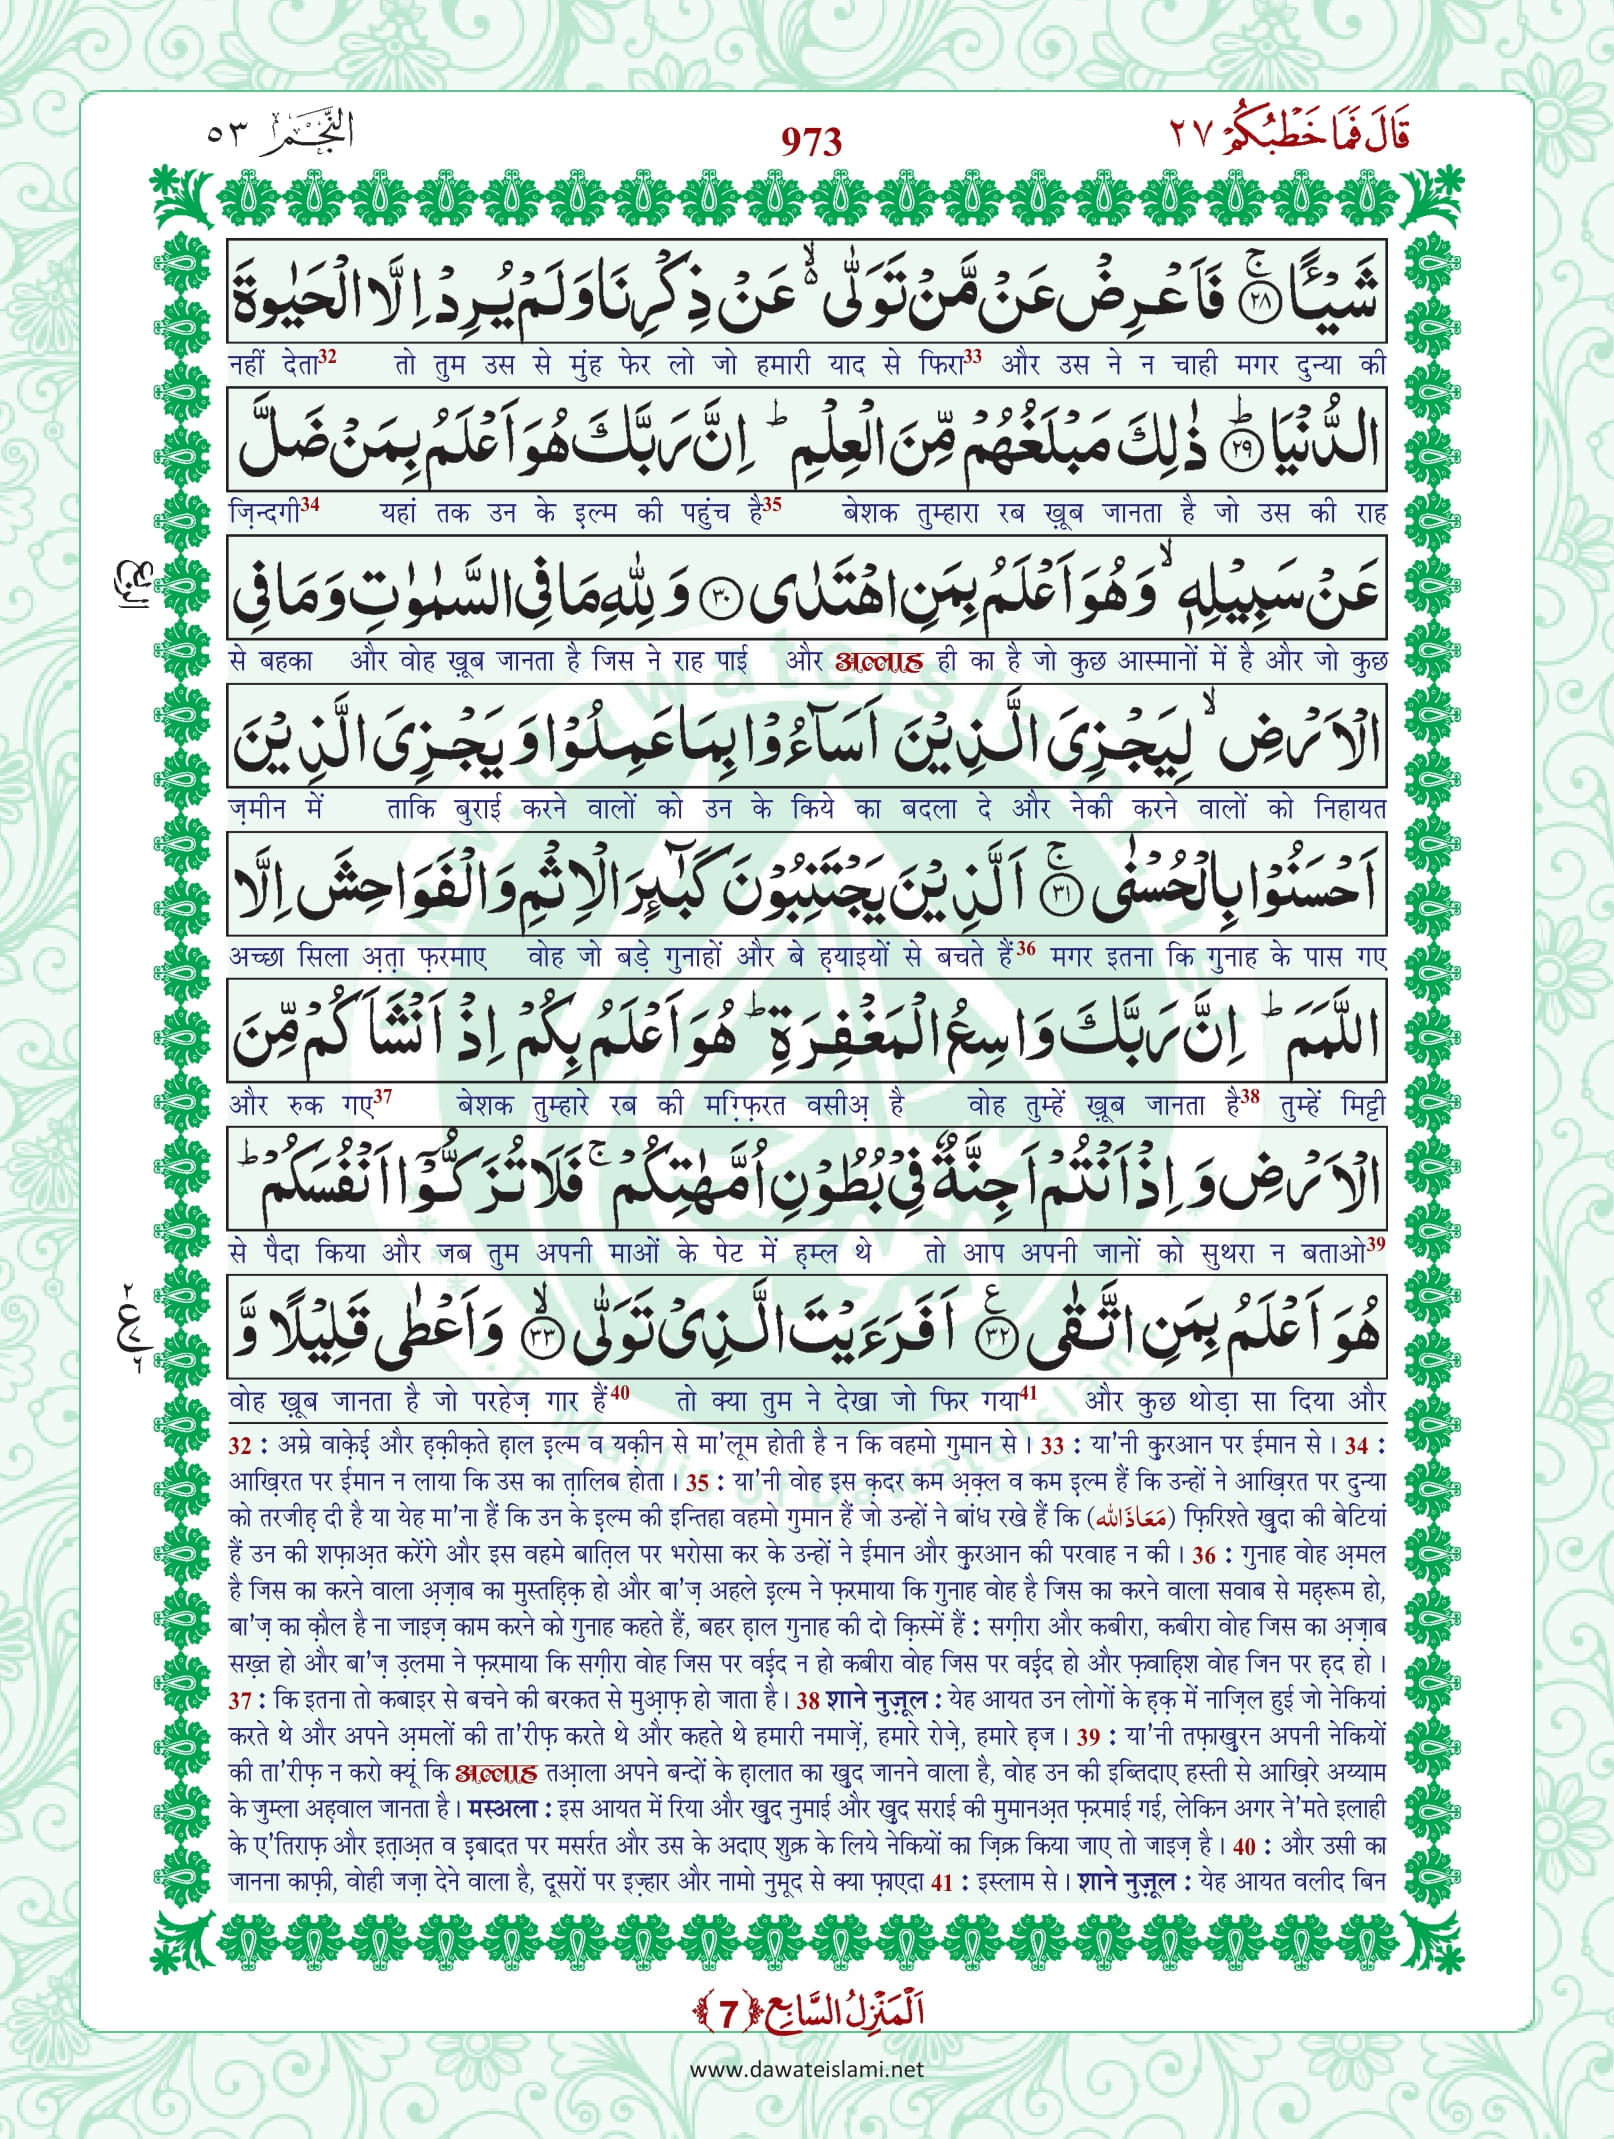 قَالَ فَمَا خَطْبُكُمْ ٢٧
973
النَّجْم ٥٣
شَيْـًٔا ﴿٢٨﴾ۚ فَاَعْرِضْ عَنْ مَّنْ تَوَلّٰى ۙ۬ عَنْ ذِكْرِنَا وَلَمْ يُرِدْ اِلَّا الْحَيٰوةَ
नहीं देता32 तो तुम उस से मुंह फेर लो जो हमारी याद से फिरा33 और उस ने न चाही मगर दुन्या की
الدُّنْيَا ﴿٢٩﴾ؕ ذٰلِكَ مَبْلَغُهُمْ مِّنَ الْعِلْمِ ؕ اِنَّ رَبَّكَ هُوَ اَعْلَمُ بِمَنْ ضَلَّ
ज़िन्दगी34 यहां तक उन के इल्म की पहुंच है35 बेशक तुम्हारा रब ख़ूब जानता है जो उस की राह
عَنْ سَبِيْلِهٖ ۙ وَهُوَ اَعْلَمُ بِمَنِ اهْتَدٰى ﴿٣٠﴾ وَلِلّٰهِ مَا فِى السَّمٰوٰتِ وَمَا فِى
से बहका और वोह ख़ूब जानता है जिस ने राह पाई और अल्लाह ही का है जो कुछ आस्मानों में है और जो कुछ
الْاَرْضِ ۙ لِيَجْزِىَ الَّذِيْنَ اَسَآءُوْا بِمَا عَمِلُوْا وَيَجْزِىَ الَّذِيْنَ
ज़मीन में ताकि बुराई करने वालों को उन के किये का बदला दे और नेकी करने वालों को निहायत
اَحْسَنُوْا بِالْحُسْنٰى ﴿٣١﴾ۚ اَلَّذِيْنَ يَجْتَنِبُوْنَ كَبٰٓئِرَ الْاِثْمِ وَالْفَوَاحِشَ اِلَّا
अच्छा सिला अ़त़ा फ़रमाए वोह जो बड़े गुनाहों और बे ह़याइयों से बचते हैं36 मगर इतना कि गुनाह के पास गए
اللَّمَمَ ؕ اِنَّ رَبَّكَ وَاسِعُ الْمَغْفِرَةِ ؕ هُوَ اَعْلَمُ بِكُمْ اِذْ اَنْشَاَكُمْ مِّنَ
और रुक गए37 बेशक तुम्हारे रब की मग़्फ़िरत वसीअ़ है वोह तुम्हें ख़ूब जानता है38 तुम्हें मिट्टी
الْاَرْضِ وَاِذْ اَنْتُمْ اَجِنَّةٌ فِىْ بُطُوْنِ اُمَّهٰتِكُمْ ۚ فَلَا تُزَكُّوْۤا اَنْفُسَكُمْ ؕ
से पैदा किया और जब तुम अपनी माओं के पेट में ह़म्ल थे तो आप अपनी जानों को सुथरा न बताओ39
هُوَ اَعْلَمُ بِمَنِ اتَّقٰى ﴿٣٢﴾ۧ اَفَرَءَيْتَ الَّذِىْ تَوَلّٰى ﴿٣٣﴾ۙ وَاَعْطٰى قَلِيْلًا وَّ
वोह ख़ूब जानता है जो परहेज़ गार हैं40 तो क्या तुम ने देखा जो फिर गया41 और कुछ थोड़ा सा दिया और
32 : अम्रे वाक़ेई और ह़क़ीक़ते ह़ाल इल्म व यक़ीन से मा'लूम होती है न कि वहमो गुमान से। 33 : या'नी कुरआन पर ईमान से। 34 :
आख़िरत पर ईमान न लाया कि उस का त़ालिब होता। 35 : या'नी वोह इस क़दर कम अ़क़्ल व कम इल्म हैं कि उन्हों ने आख़िरत पर दुन्या
को तरजीह़ दी है या येह मा'ना हैं कि उन के इल्म की इन्तिहा वहमो गुमान हैं जो उन्हों ने बांध रखे हैं कि (مَعَاذَاللّٰه) फ़िरिश्ते ख़ुदा की बेटियां
हैं उन की शफ़ाअ़त करेंगे और इस वहमे बात़िल पर भरोसा कर के उन्हों ने ईमान और कुरआन की परवाह न की। 36 : गुनाह वोह अ़मल
है जिस का करने वाला अ़ज़ाब का मुस्तह़िक़ हो और बा'ज़ अहले इल्म ने फ़रमाया कि गुनाह वोह है जिस का करने वाला सवाब से मह़रूम हो,
बा'ज़ का क़ौल है ना जाइज़ काम करने को गुनाह कहते हैं, बहर ह़ाल गुनाह की दो क़िस्में हैं : सग़ीरा और कबीरा, कबीरा वोह जिस का अ़ज़ाब
सख़्त हो और बा'ज़ उ़लमा ने फ़रमाया कि सग़ीरा वोह जिस पर वई़द न हो कबीरा वोह जिस पर वई़द हो और फ़वाह़िश वोह जिन पर ह़द हो।
37 : कि इतना तो कबाइर से बचने की बरकत से मुआ़फ़ हो जाता है। 38 शाने नुज़ूल : येह आयत उन लोगों के ह़क़ में नाज़िल हुई जो नेकियां
करते थे और अपने अ़मलों की ता'रीफ़ करते थे और कहते थे हमारी नमाज़ें, हमारे रोज़े, हमारे ह़ज। 39 : या'नी तफ़ाख़ुरन अपनी नेकियों
की ता'रीफ़ न करो क्यूं कि अल्लाह तआ़ला अपने बन्दों के ह़ालात का ख़ुद जानने वाला है, वोह उन की इब्तिदाए हस्ती से आख़िरे अय्याम
के जुम्ला अह़वाल जानता है। मस्अला : इस आयत में रिया और ख़ुद नुमाई और ख़ुद सराई की मुमानअ़त फ़रमाई गई, लेकिन अगर ने'मते इलाही
के ए'तिराफ़ और इत़ाअ़त व इ़बादत पर मसर्रत और उस के अदाए शुक्र के लिये नेकियों का ज़िक्र किया जाए तो जाइज़ है। 40 : और उसी का
जानना काफ़ी, वोही जज़ा देने वाला है, दूसरों पर इज़्हार और नामो नुमूद से क्या फ़ाएदा 41 : इस्लाम से। शाने नुज़ूल : येह आयत वलीद बिन
اَلْمَنْزِلُ السَّابِع ﴿7﴾
www.dawateislami.net